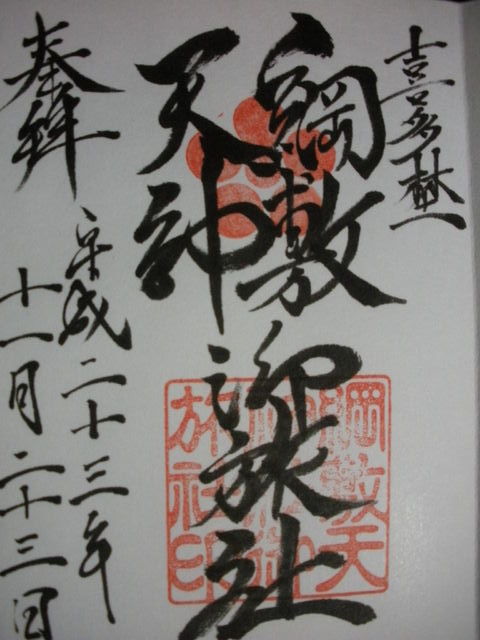 喜多埜
綱敷
天神
御旅社
奉拝
平成二十三年
十一月二十三日
綱敷天
神社御
旅社印